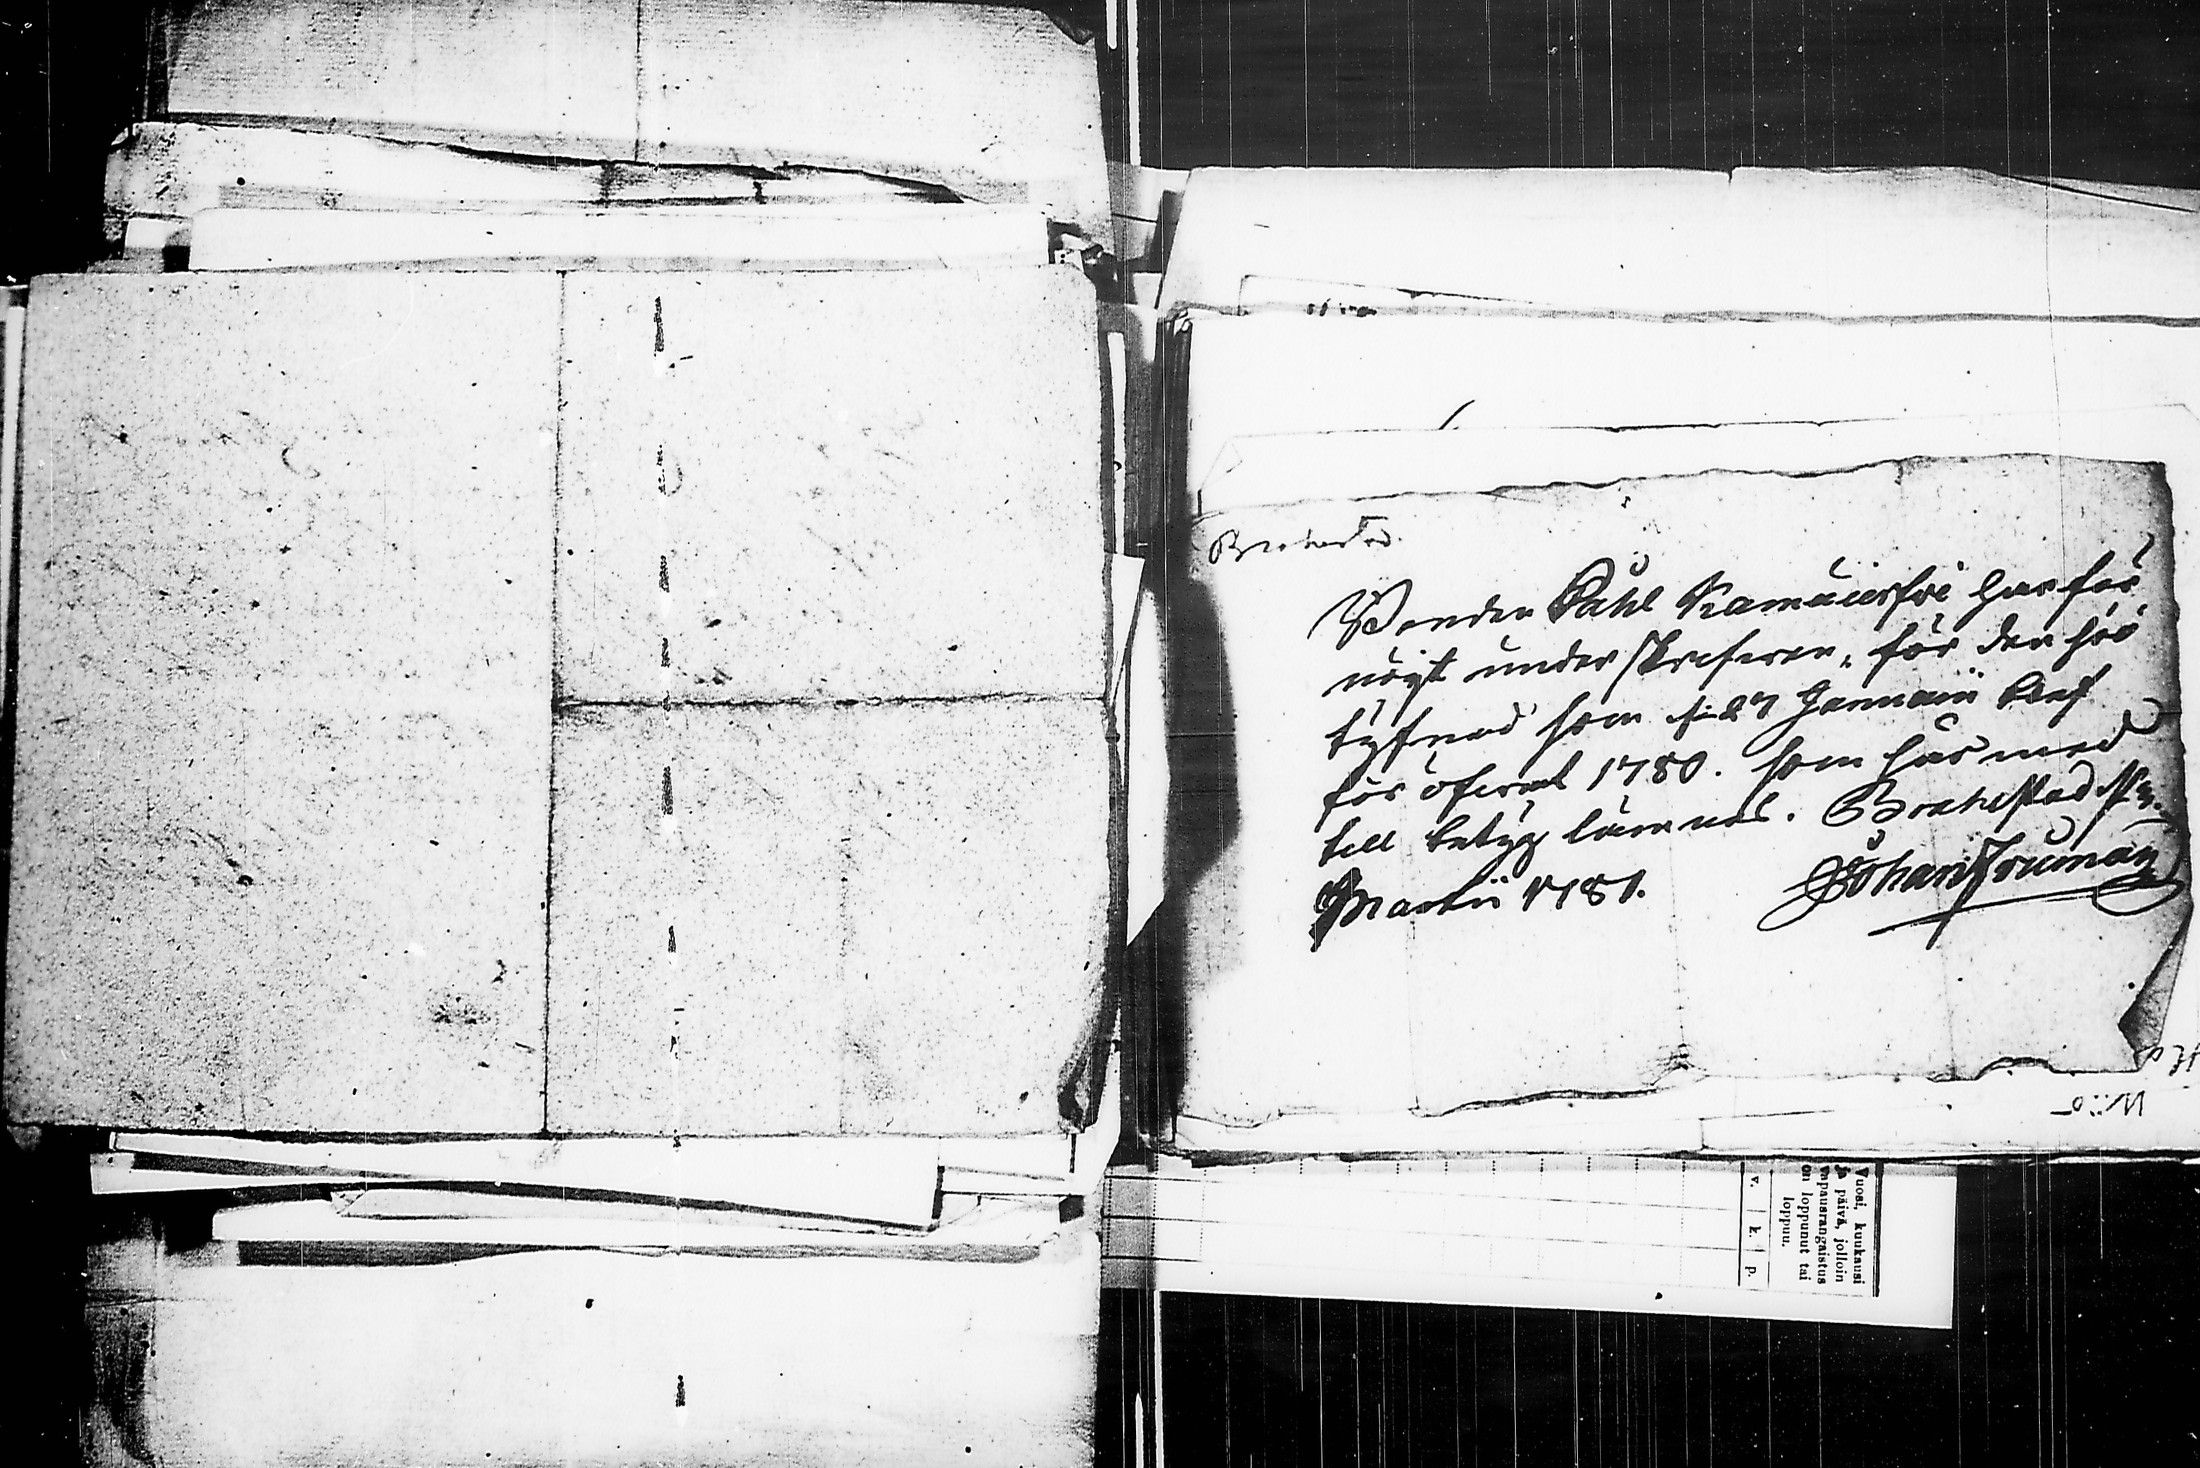 Brahestad
Bonden Påhl Kamuiersfri har för
nögt underskrefvren, för den hös
tyfnad som d: 27 Januarii blef
för öfvad 1780. som här med
till betyg lämnas. Brahestad d.
Martii 1781. Johan Fruman
N:o
Vuosi, kuukausi
ja päivä, jolloin
vapausrangaistus
on loppunut tai
loppuu.
v. k. p.